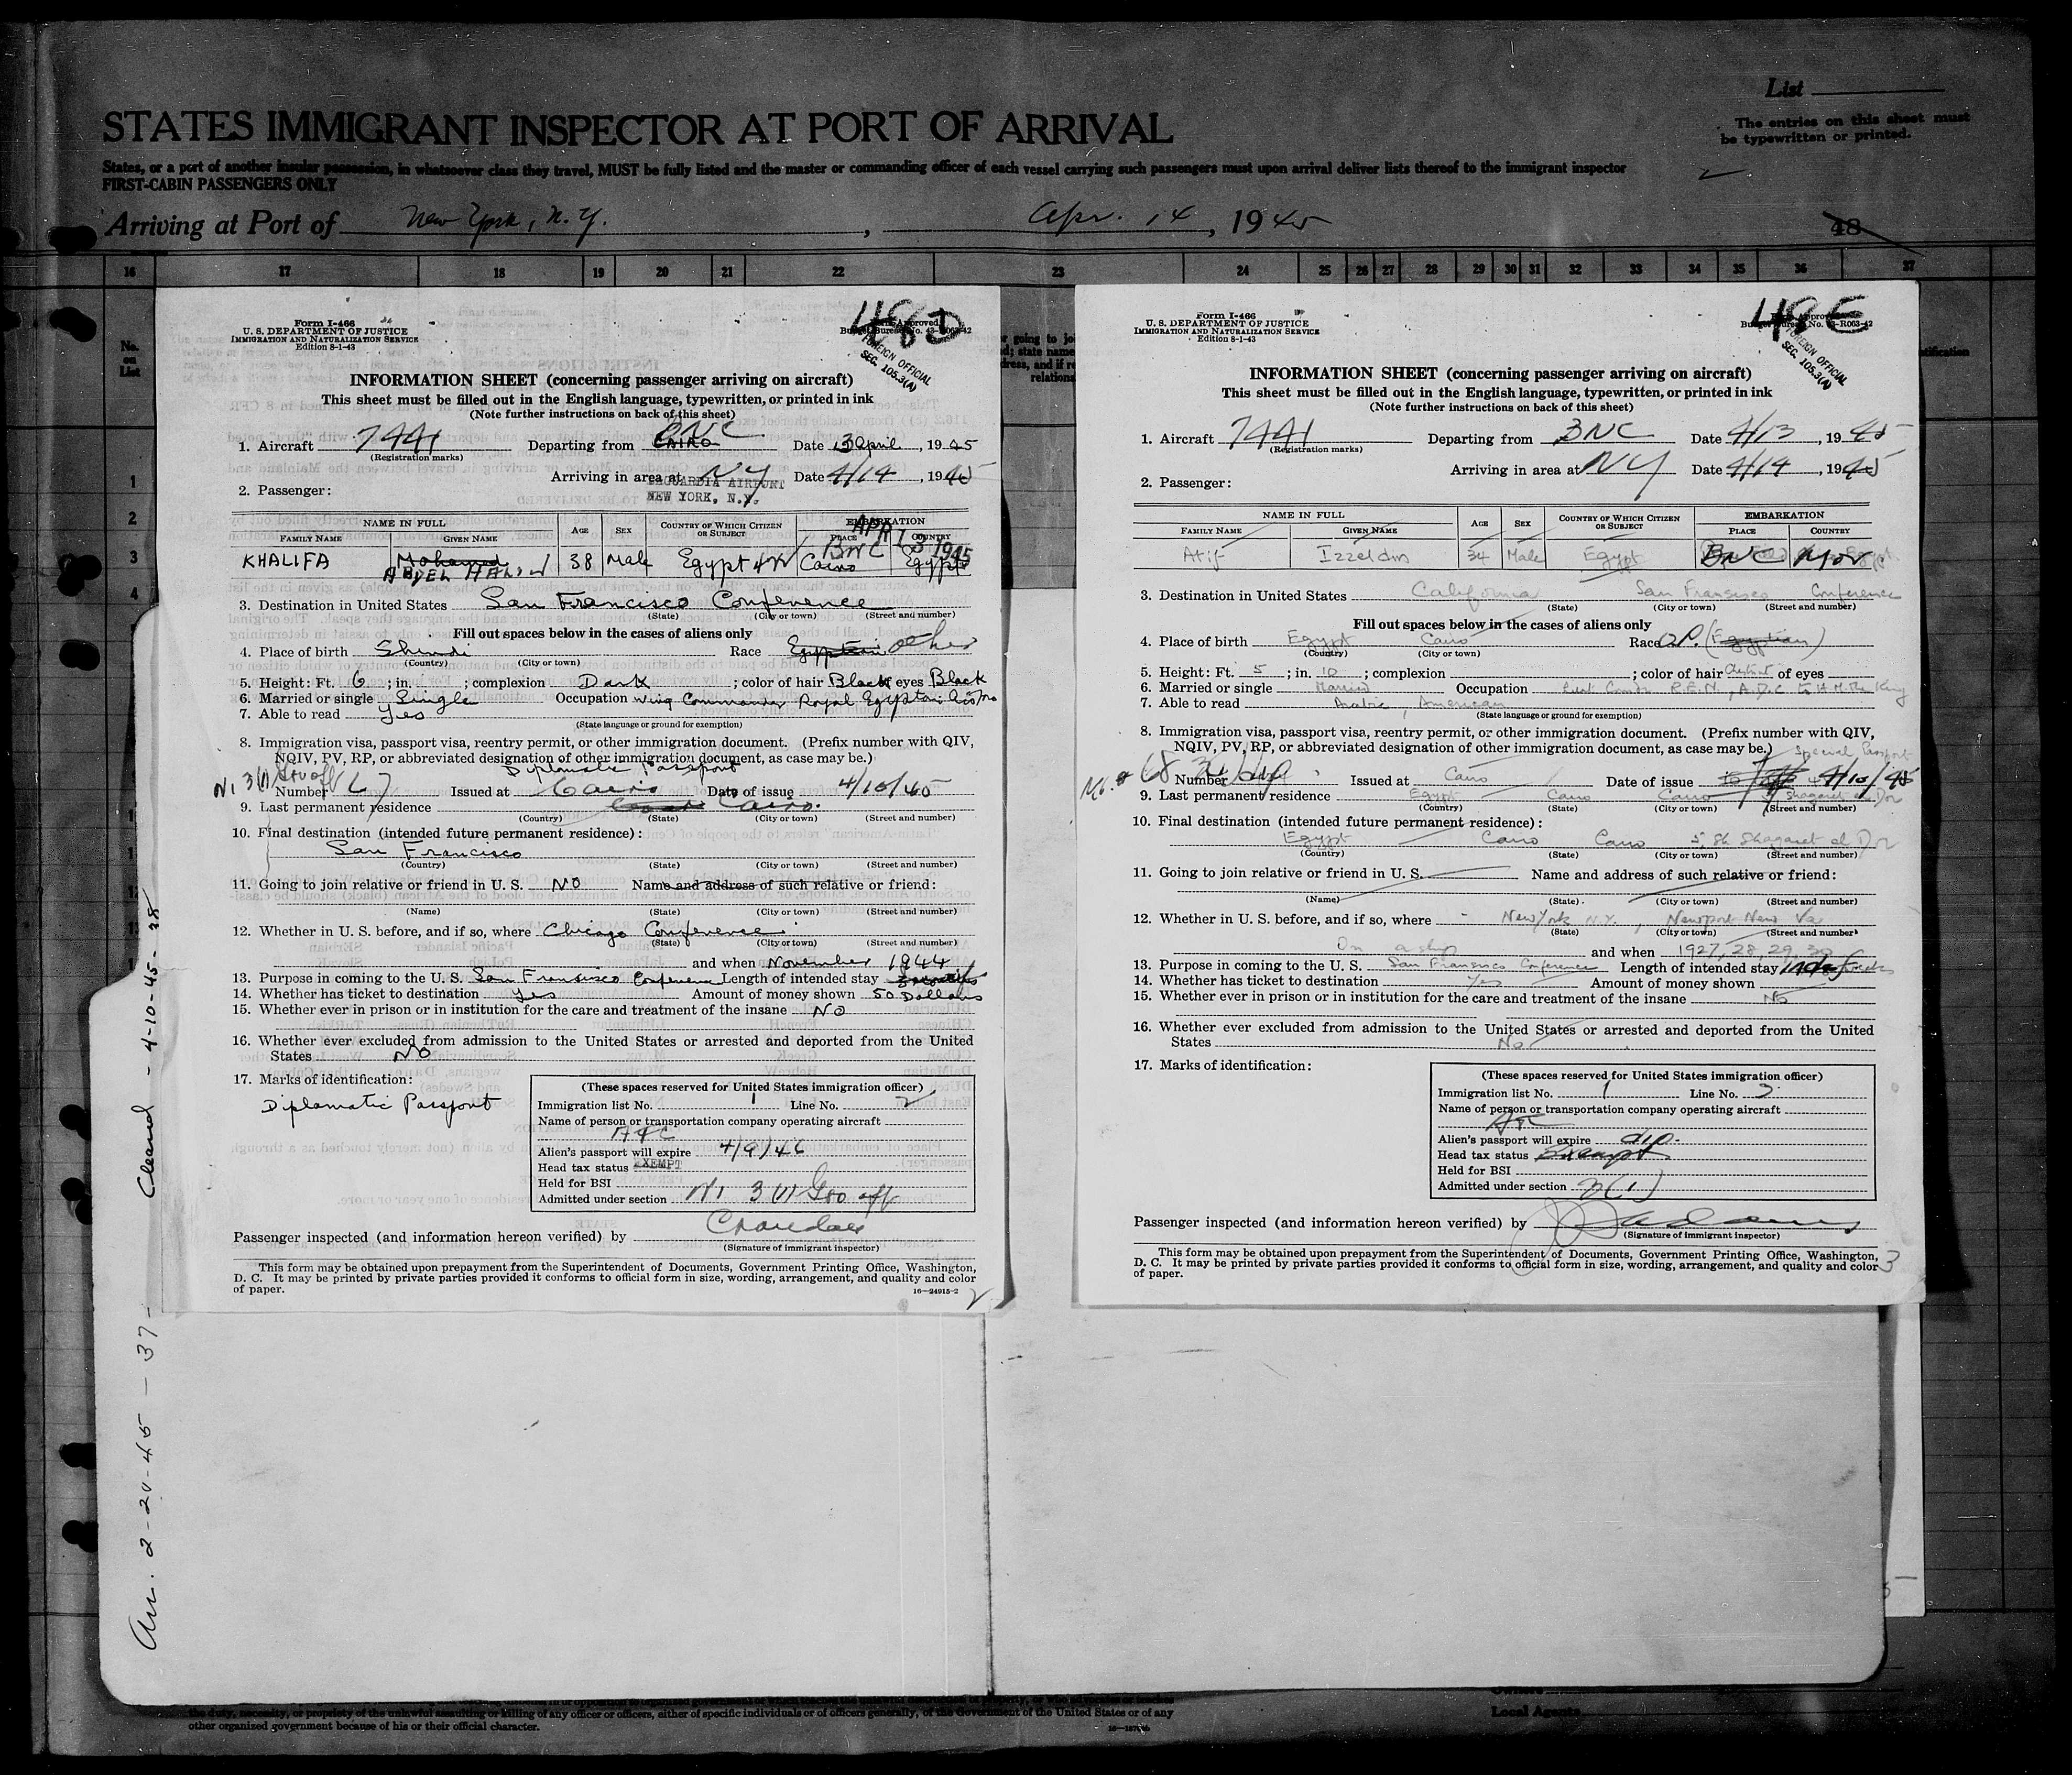 List
The entries on this sheet must
be typewritten or printed.
STATES IMMIGRANT INSPECTOR AT PORT OF ARRIVAL
States, or a port of another insular possession, in whatsoever class they travel, MUST be fully listed and the master or commanding officer of each vessel carrying such passengers must upon arrival deliver lists thereof to the immigrant inspector
FIRST-CABIN PASSENGERS ONLY
Arriving at Port of New York, N.Y. , Apr. 14 , 1945
48
16 17 18 19 20 21 22 23 24 25 26 27 28 29 30 31 32 33 34 35 36 37
No. on List
1
2
3
4
Form I-466
U. S. DEPARTMENT OF JUSTICE
IMMIGRATION AND NATURALIZATION SERVICE
Edition 8-1-43
48D
FOREIGN OFFICIAL
SEC. 105.3(A)
INFORMATION SHEET (concerning passenger arriving on aircraft)
This sheet must be filled out in the English language, typewritten, or printed in ink
(Note further instructions on back of this sheet)
1. Aircraft 7441 Departing from CAIRO BNC Date 3 April , 1945
(Registration marks)
Arriving in area at NY Date 4/14 , 1945
LAGUARDIA AIRPORT
NEW YORK, N.Y.
2. Passenger:
APR 13 1945
NAME IN FULL AGE SEX COUNTRY OF WHICH CITIZEN OR SUBJECT EMBARKATION
FAMILY NAME GIVEN NAME PLACE COUNTRY
KHALIFA Mohamed ABDEL HALIM 38 Male Egypt BNC Cairo Egypt
3. Destination in United States San Francisco Conference
(State) (City or town) (Street and number)
Fill out spaces below in the cases of aliens only
4. Place of birth Shendi Race Egyptian other
(Country) (City or town)
5. Height: Ft. 6 ; in. ; complexion Dark ; color of hair Black eyes Black
6. Married or single Single Occupation Wing Commander Royal Egyptian
7. Able to read Yes
(State language or ground for exemption)
8. Immigration visa, passport visa, reentry permit, or other immigration document. (Prefix number with QIV,
NQIV, PV, RP, or abbreviated designation of other immigration document, as case may be.)
Diplomatic Passport
Number Issued at Cairo Date of issue 4/10/45
9. Last permanent residence Cairo.
(Country) (State) (City or town) (Street and number)
10. Final destination (intended future permanent residence):
San Francisco
(Country) (State) (City or town) (Street and number)
11. Going to join relative or friend in U. S. NO Name and address of such relative or friend:
(Name) (State) (City or town) (Street and number)
12. Whether in U. S. before, and if so, where Chicago Conference
(State) (City or town) (Street and number)
and when November 1944
13. Purpose in coming to the U. S. San Francisco Conference Length of intended stay
14. Whether has ticket to destination Yes Amount of money shown 50 Dollars
15. Whether ever in prison or in institution for the care and treatment of the insane NO
16. Whether ever excluded from admission to the United States or arrested and deported from the United
States NO
17. Marks of identification:
Diplomatic Passport
(These spaces reserved for United States immigration officer)
Immigration list No. 1 Line No. 2
Name of person or transportation company operating aircraft
ATC
Alien's passport will expire 4/9/46
Head tax status EXEMPT
Held for BSI
Admitted under section
Passenger inspected (and information hereon verified) by
(Signature of immigrant inspector)
This form may be obtained upon prepayment from the Superintendent of Documents, Government Printing Office, Washington,
D. C. It may be printed by private parties provided it conforms to official form in size, wording, arrangement, and quality and color
of paper.
16—24915-2
2
Form I-466
U. S. DEPARTMENT OF JUSTICE
IMMIGRATION AND NATURALIZATION SERVICE
Edition 8-1-43
48E
FOREIGN OFFICIAL
SEC. 105.3(A)
INFORMATION SHEET (concerning passenger arriving on aircraft)
This sheet must be filled out in the English language, typewritten, or printed in ink
(Note further instructions on back of this sheet)
1. Aircraft 7441 Departing from BNC Date 4/13 , 1945
(Registration marks)
Arriving in area at NY Date 4/14 , 1945
2. Passenger:
NAME IN FULL AGE SEX COUNTRY OF WHICH CITIZEN OR SUBJECT EMBARKATION
FAMILY NAME GIVEN NAME PLACE COUNTRY
Atif Izzeldin 34 Male Egypt BNC
3. Destination in United States California San Fransisco Conference
(State) (City or town) (Street and number)
Fill out spaces below in the cases of aliens only
4. Place of birth Egypt Cairo Race (Egyptian)
(Country) (City or town)
5. Height: Ft. 5 ; in. 10 ; complexion ; color of hair of eyes
6. Married or single Married Occupation R.E.N., A.D.C. to H.M. the King
7. Able to read Arabic, American
(State language or ground for exemption)
8. Immigration visa, passport visa, reentry permit, or other immigration document. (Prefix number with QIV,
NQIV, PV, RP, or abbreviated designation of other immigration document, as case may be.) Special Passport
Number Issued at Cairo Date of issue 4/10/45
9. Last permanent residence Egypt Cairo Cairo
(Country) (State) (City or town) (Street and number)
10. Final destination (intended future permanent residence):
Egypt Cairo Cairo 5, Sh Shagaret el Dor
(Country) (State) (City or town) (Street and number)
11. Going to join relative or friend in U. S. Name and address of such relative or friend:
(Name) (State) (City or town) (Street and number)
12. Whether in U. S. before, and if so, where New York N.Y., Newport New Va
(State) (City or town) (Street and number)
On a ship and when 1927, 28, 29, 30
13. Purpose in coming to the U. S. San Fransisco Conference Length of intended stay
14. Whether has ticket to destination Yes Amount of money shown
15. Whether ever in prison or in institution for the care and treatment of the insane No
16. Whether ever excluded from admission to the United States or arrested and deported from the United
States No
17. Marks of identification:
(These spaces reserved for United States immigration officer)
Immigration list No. 1 Line No. 3
Name of person or transportation company operating aircraft
ATC
Alien's passport will expire dip.
Head tax status Exempt
Held for BSI
Admitted under section 3(1)
Passenger inspected (and information hereon verified) by
(Signature of immigrant inspector)
This form may be obtained upon prepayment from the Superintendent of Documents, Government Printing Office, Washington,
D. C. It may be printed by private parties provided it conforms to official form in size, wording, arrangement, and quality and color
of paper.
3
Arr. 2-20-45 - 37 - Cleared - 4-10-45 - 28
the duty, necessity, or propriety of the unlawful assaulting or killing of any officer or officers, either of specific individuals or of officers generally, of the Government of the United States or of any
other organized government because of his or their official character.
Local Agents